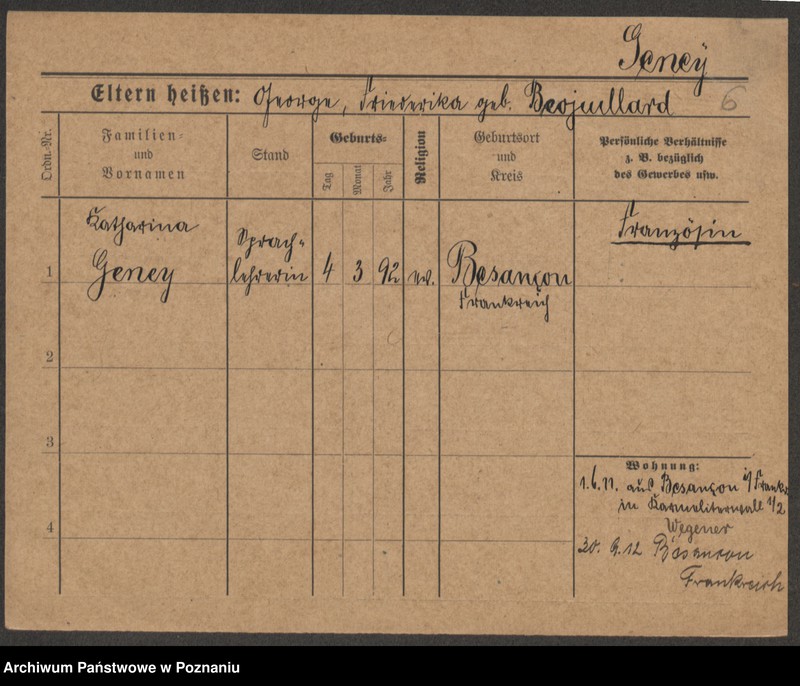 Geney
Eltern heißen: George, Friederika geb. Beojuillard 6
Ordn.-Nr.
Familien-
und
Vornamen
Stand
Geburts-
Tag
Monat
Jahr
Religion
Geburtsort
und
Kreis
Persönliche Verhältnisse
z. B. bezüglich
des Gewerbes usw.
1
Katharina
Geney
Sprach-
lehrerin
4
3
92
ev.
Besançon
Frankreich
Französin
2
3
4
Wohnung:
1.6.11. aus Besançon i/ Frankr
in Karmeliterwall 1/2
Wegener
30. 9. 12 Besancon
Frankreich
Archiwum Państwowe w Poznaniu